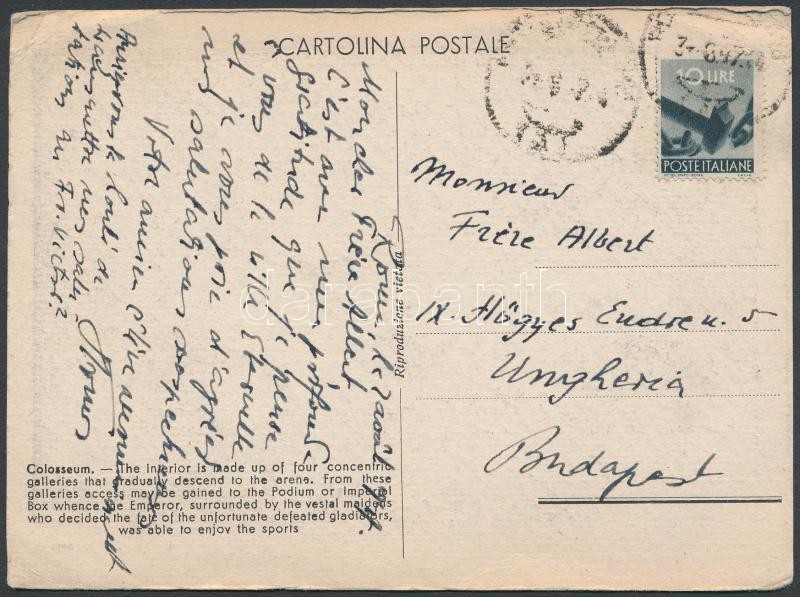 CARTOLINA POSTALE
10 LIRE
POSTE ITALIANE
Rome, le 2 août 1947.
Mon cher Frère Albert
C'est avec une profonde
gratitude que je pense
à vous de la ville Éternelle
et je vous prie d'agréer
mes salutations respectueuses
Votre ancien élève
Monsieur
Frère Albert
IX. Hőgyes Endre u. 5
Ungheria
Budapest
Riproduzione vietata
Colosseum. — The interior is made up of four concentric
galleries that gradually descend to the arena. From these
galleries access may be gained to the Podium or Imperial
Box whence the Emperor, surrounded by the vestal maidens
who decided the fate of the unfortunate defeated gladiators,
was able to enjoy the sports
darabanth